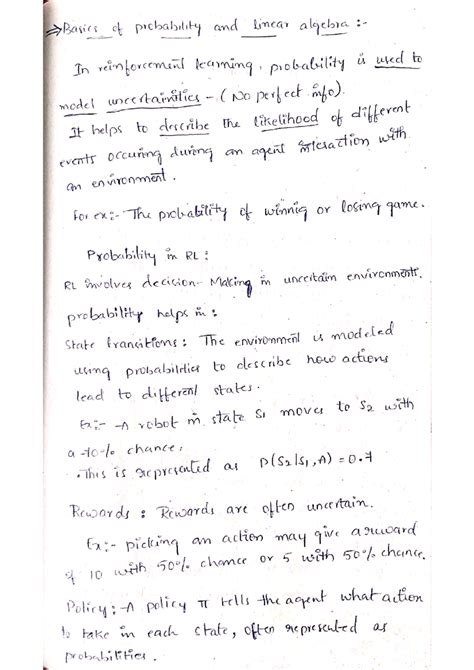 ⇒ Basics of probability and linear algebra :-
In reinforcement learning, probability is used to
model uncertainities - (No perfect info).
It helps to describe the likelihood of different
events occuring during an agent interaction with
an environment.
For ex:- The probability of winnig or losing game.
Probability in RL:
RL involves decision-Making in uncertain environments.
probability helps in :
State transitions : The environment is modeled
using probabilities to describe how actions
lead to different states.
Ex:- A robot in state S1 moves to S2 with
a 70% chance.
. This is represented as P(S2|S1,A) = 0.7
Rewards : Rewards are often uncertain.
Ex:- picking an action may give a reward
of 10 with 50% chance or 5 with 50% chance.
Policy :- A policy π tells the agent what action
to take in each state, often represented as
probabilities.